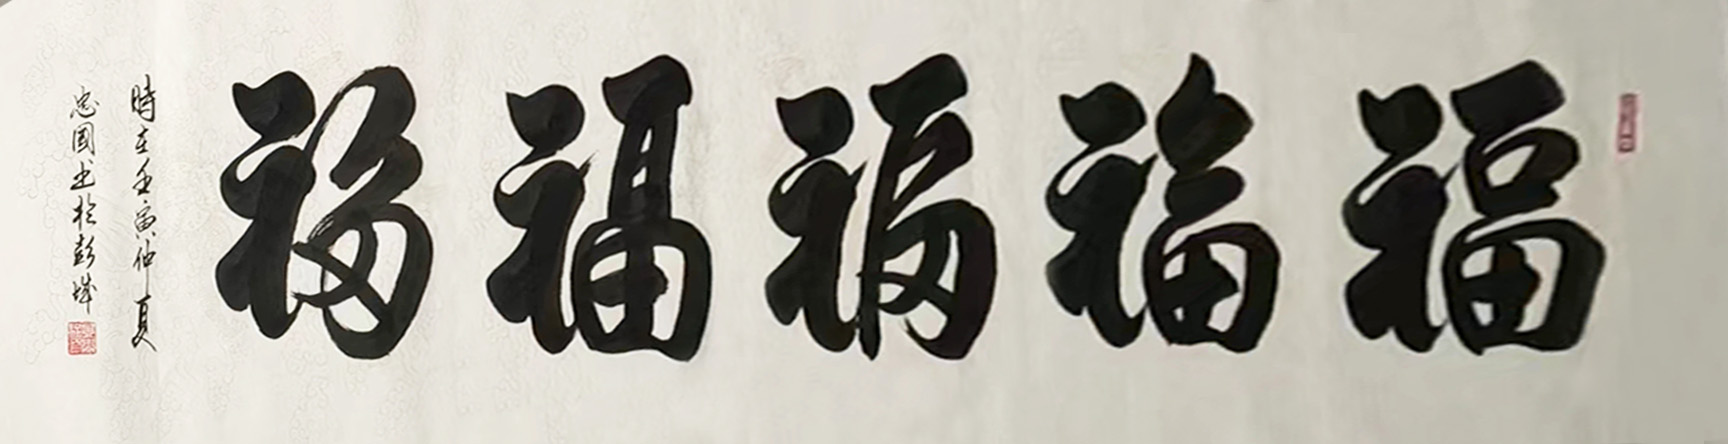 福福福福福
時在壬寅仲夏
忠國书於彭城